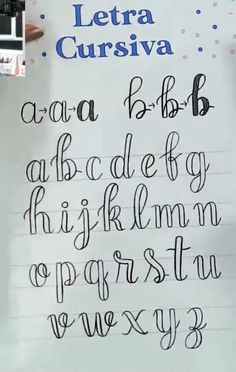 Letra
Cursiva
a→a→a b→b→b
abcdefg
hijklmn
opqrstu
vwxyz